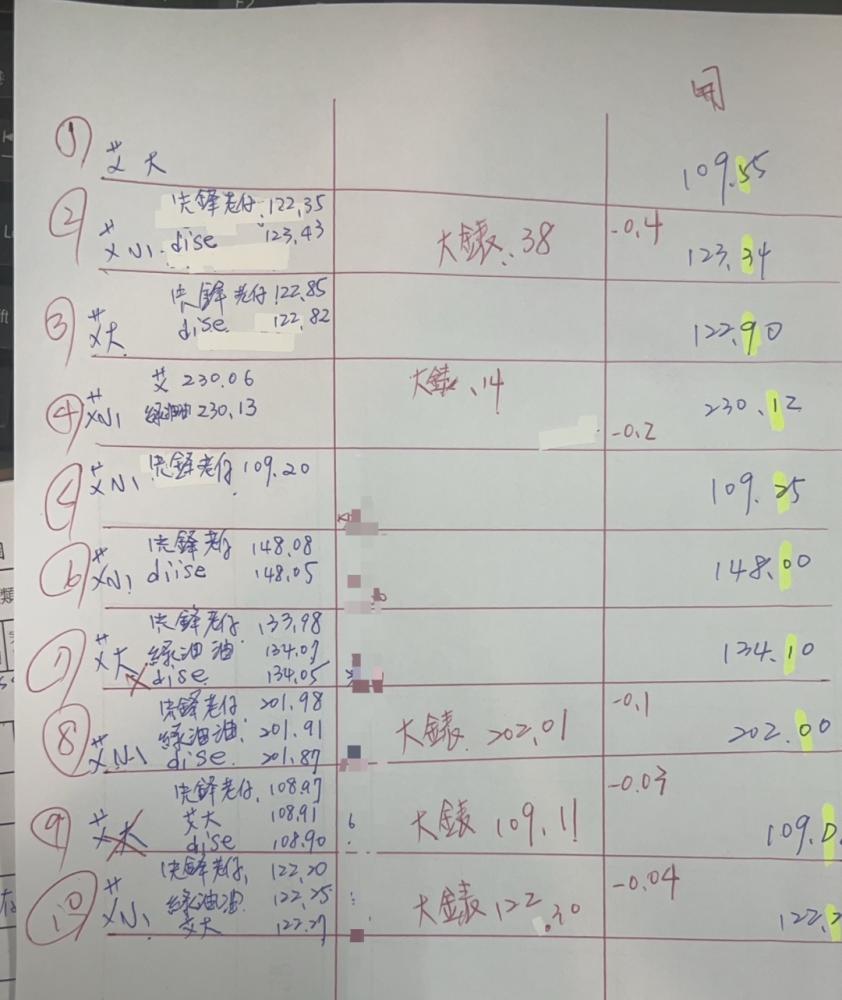 用
① 艾大 109.55
快鋒老仔 122.35
② 艾N1 dise 123.43 大錶 .38 -0.4 123.34
快鋒老仔 122.85
③ 艾大 dise 122.82 122.90
艾 230.06 大錶 .14
④ 艾N1 綠油油 230.13 -0.2 230.12
⑤ 艾N1 快鋒老仔 109.20 109.25
快鋒老仔 148.08
⑥ 艾N1 diise 148.05 148.00
快鋒老仔 133.98
⑦ 艾大 綠油油 134.07 134.10
dise 134.05
快鋒老仔 201.98 -0.1
⑧ 綠油油 201.91 大錶 202.01 202.00
艾N1 dise 201.87
快鋒老仔 108.97 -0.03
⑨ 艾大 艾大 108.91 大錶 109.11 109.0
dise 108.90
快鋒老仔 122.20 -0.04
⑩ 艾N1 綠油油 122.25 大錶 122.30 122.2
艾大 122.27